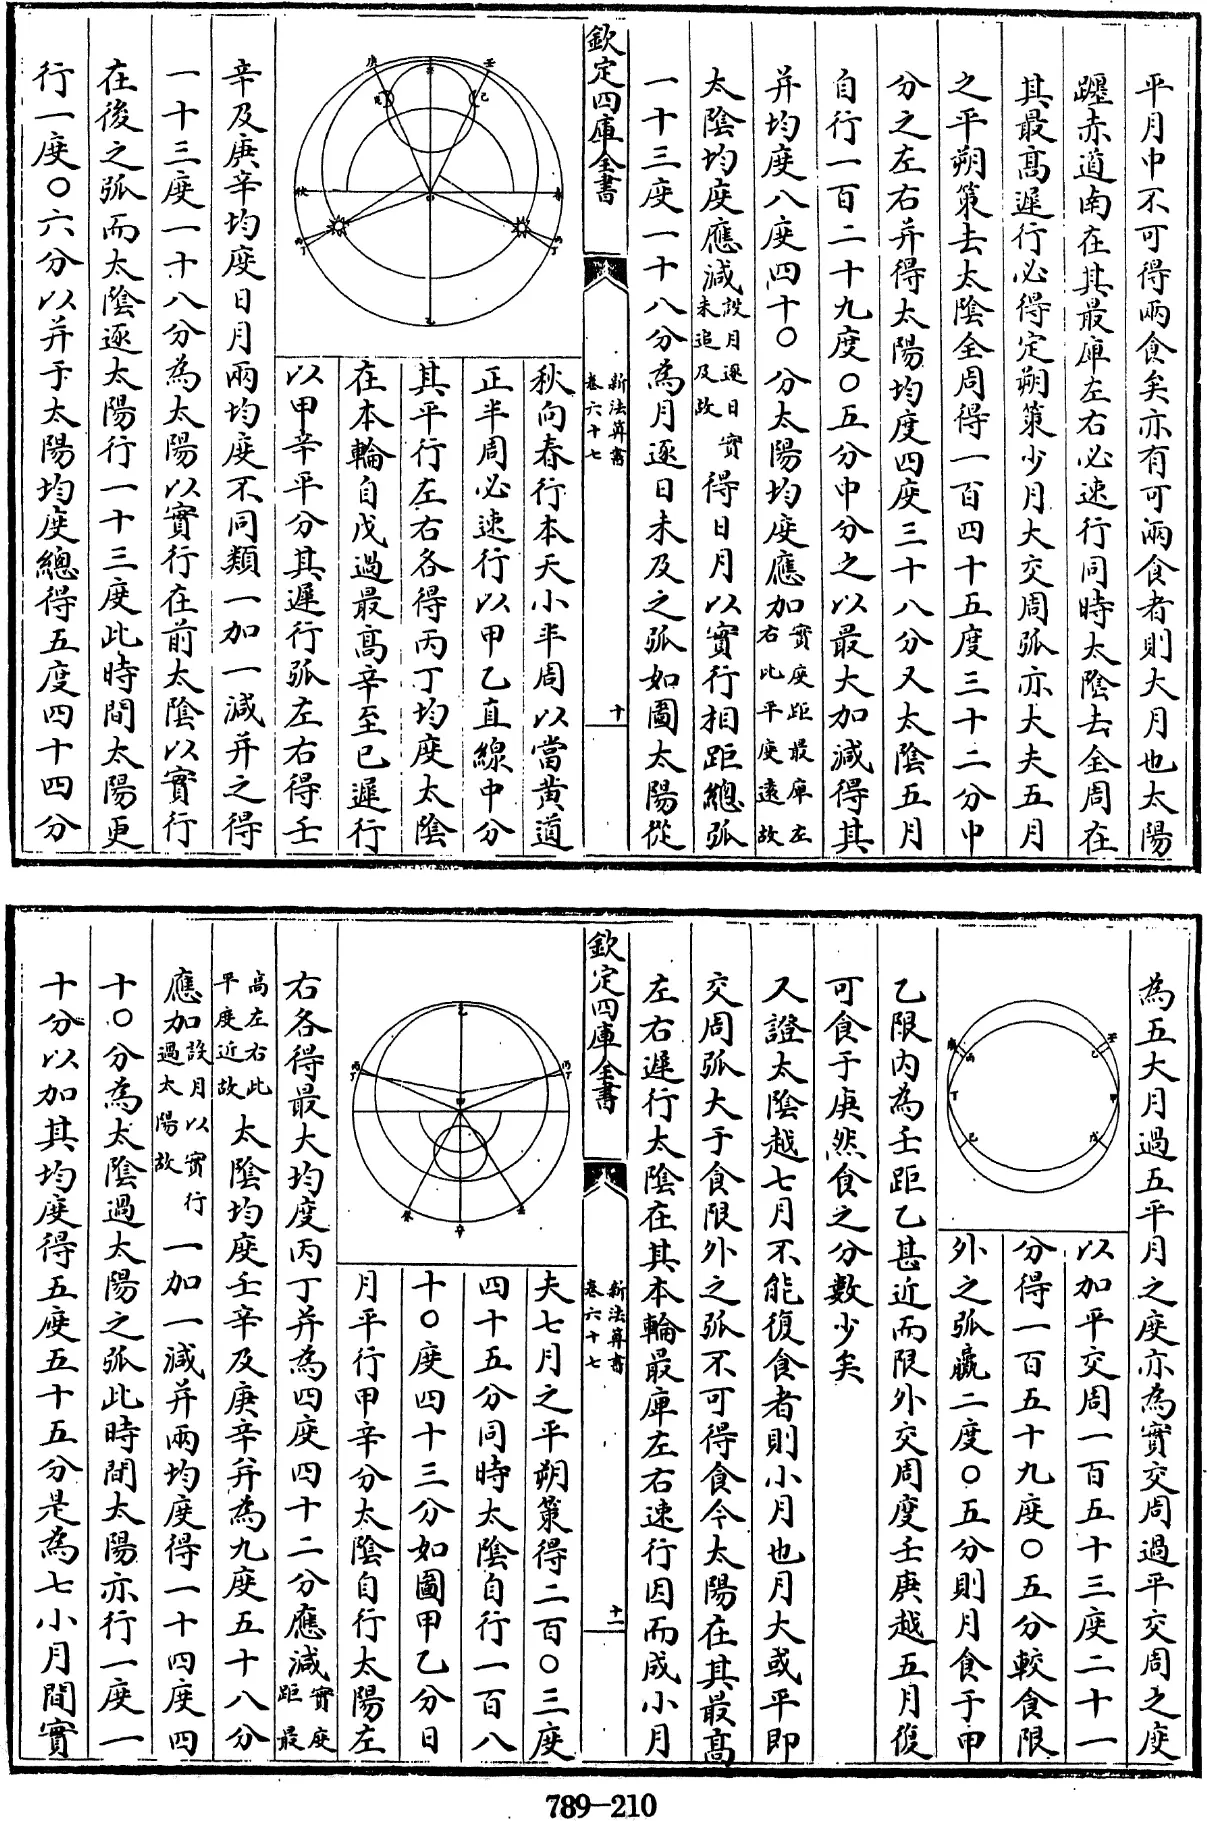 平月中不可得兩食矣亦有可兩食者則大月也太陽
躔赤道南在其最庳左右必速行同時太陰去全周在
其最高遲行必得定朔策少月大交周弧亦大夫五月
之平朔策去太陰全周得一百四十五度三十二分中
分之左右并得太陽均度四度三十八分又太陰五月
自行一百二十九度〇五分中分之以最大加減得其
并均度八度四十〇分太陽均度應加實度距最庳左右比平度遠故
太陰均度應減設月逐日實未追及故得日月以實行相距總弧
一十三度一十八分為月逐日未及之弧如圖太陽從
欽定四庫全書
新法算書
卷六十七
十
秋向春行本天小半周以當黄道
正半周必速行以甲乙直線中分
其平行左右各得丙丁均度太陰
在本輪自戊過最高辛至己遲行
以甲辛平分其遲行弧左右得壬
壬
庚
辛
己
戊
春
秋
甲
丙
丁
丙
丁
乙
辛及庚辛均度日月兩均度不同類一加一減并之得
一十三度一十八分為太陽以實行在前太陰以實行
在後之弧而太陰逐太陽行一十三度此時間太陽更
行一度〇六分以并于太陽均度總得五度四十四分
為五大月過五平月之度亦為實交周過平交周之度
壬
乙
庚
丙
甲
丁
戊
己
以加平交周一百五十三度二十一
分得一百五十九度〇五分較食限
外之弧贏二度〇五分則月食于甲
乙限内為壬距乙甚近而限外交周度壬庚越五月復
可食于庚然食之分數少矣
又證太陰越七月不能復食者則小月也月大或平即
交周弧大于食限外之弧不可得食今太陽在其最高
左右遲行太陰在其本輪最庳左右速行因而成小月
欽定四庫全書
新法算書
卷六十七
十一
夫七月之平朔策得二百〇三度
四十五分同時太陰自行一百八
十〇度四十三分如圖甲乙分日
月平行甲辛分太陰自行太陽左
乙
丙
丁
丙
丁
甲
壬
辛
癸
右各得最大均度丙丁并為四度四十二分應減實度距最
高左右比平度近故太陰均度壬辛及庚辛并為九度五十八分
應加設月以實行過太陽故一加一減并兩均度得一十四度四
十〇分為太陰過太陽之弧此時間太陽亦行一度一
十分以加其均度得五度五十五分是為七小月間實
789—210